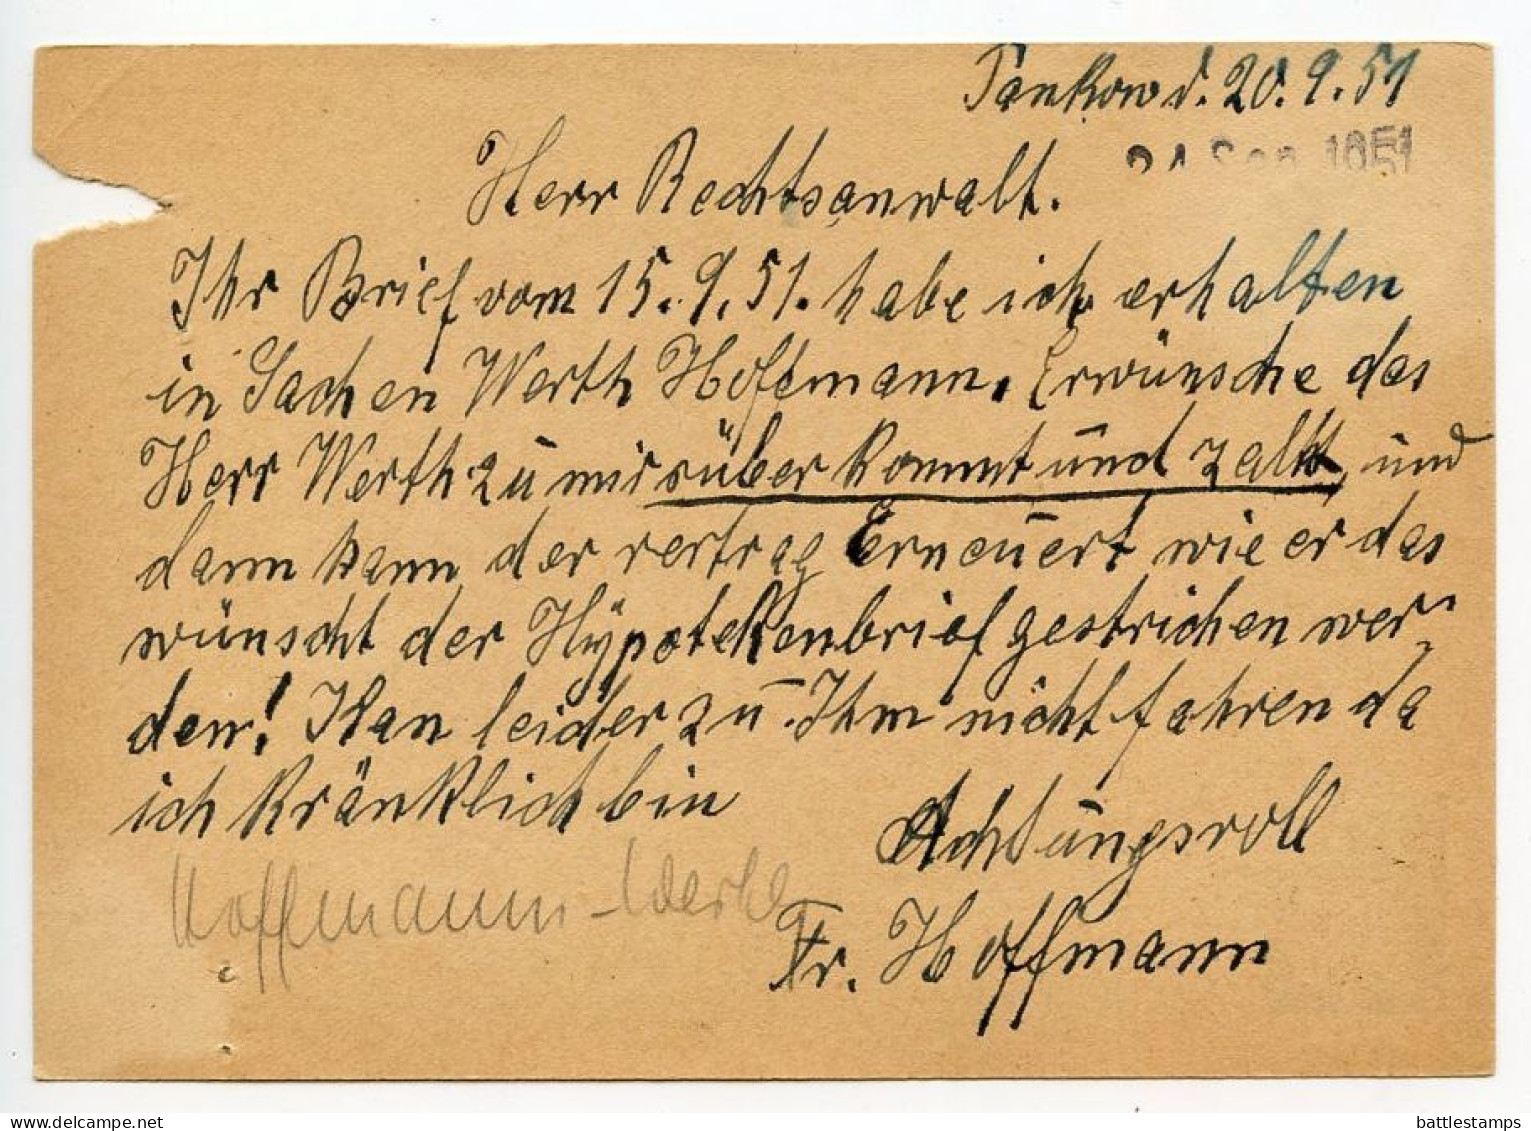 Pankow d. 20.9.51
24 Sep. 1951
Herr Rechtsanwalt.
Ihr Brief vom 15.9.51. habe ich erhalten
in Sachen Werth Hoffmann. Erwünsche das
Herr Werth zu mir rüber kommt und zalht, und
dann kann der vertrag Erneuert wie er das
wünscht der Hÿpotekenbrief gestrichen wer-
den! Kan leider zu Ihm nicht fahren da
ich kränklich bin
Achtungsvoll
Hoffmann - Werth
Fr. Hoffmann
delcampe.net
battlestamps